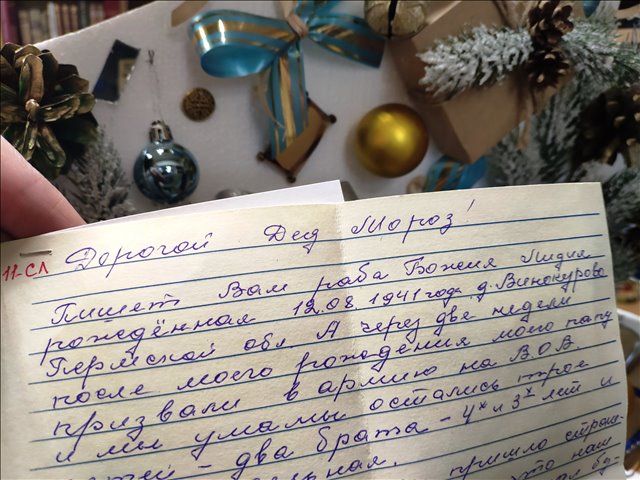 Дорогой Дед Мороз!
11-СЛ
Пишет Вам раба Божия Лидия
рождённая 12.08.1941 года д. Винокурово
Пермской обл А через две недели
после моего рождения моего папу
призвали в армию на В.О.В.
и мы у мамы остались трое
- два брата - 4х и 3х лет и
пришло
это наш